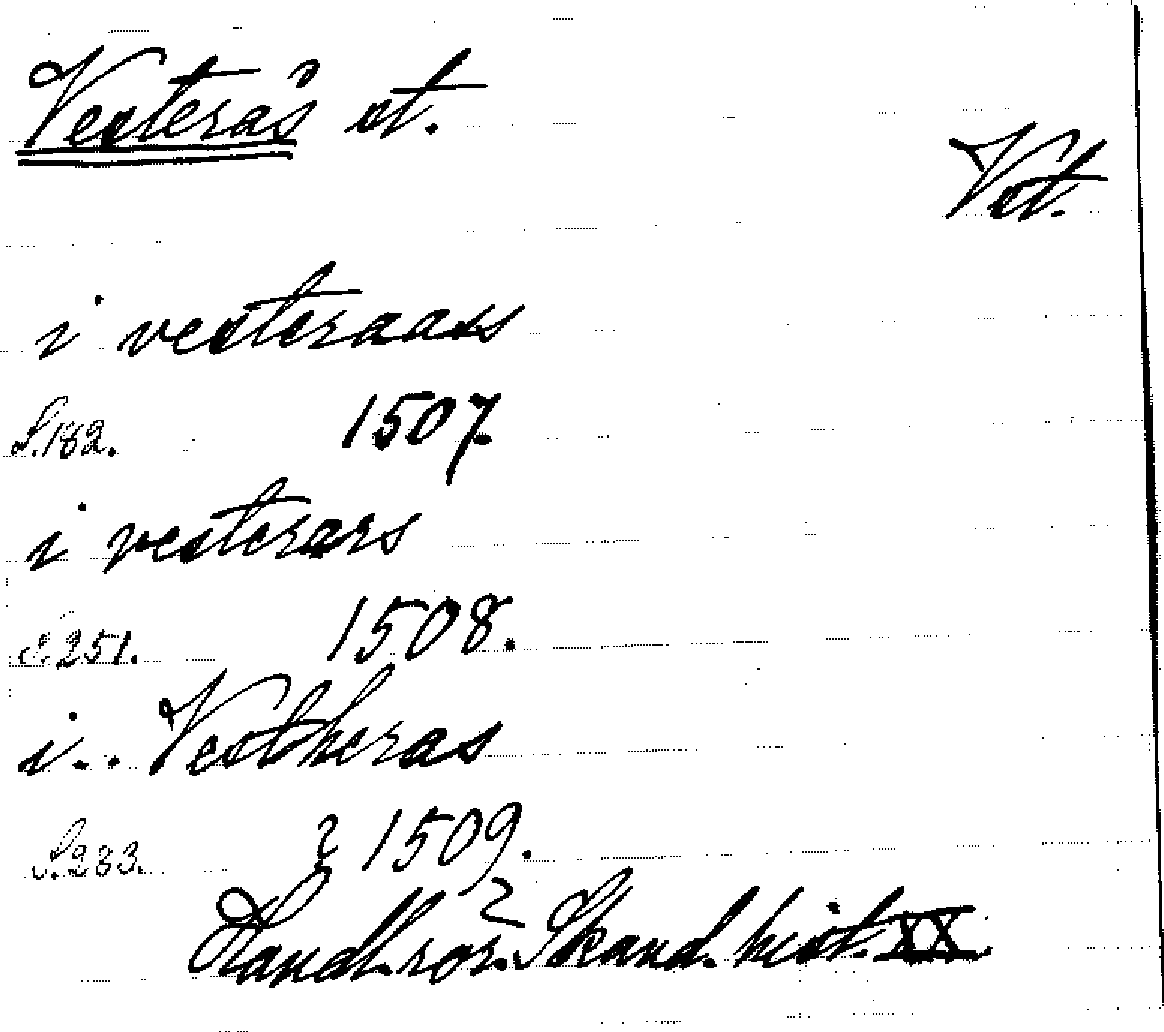 Vesterås st.
Vst.
i vesteraass
S. 182. 1507.
i vesterars
S. 251. 1508.
i.. Vestheras
S. 283. ? 1509.
Handl. rör. Skand. hist. XX.